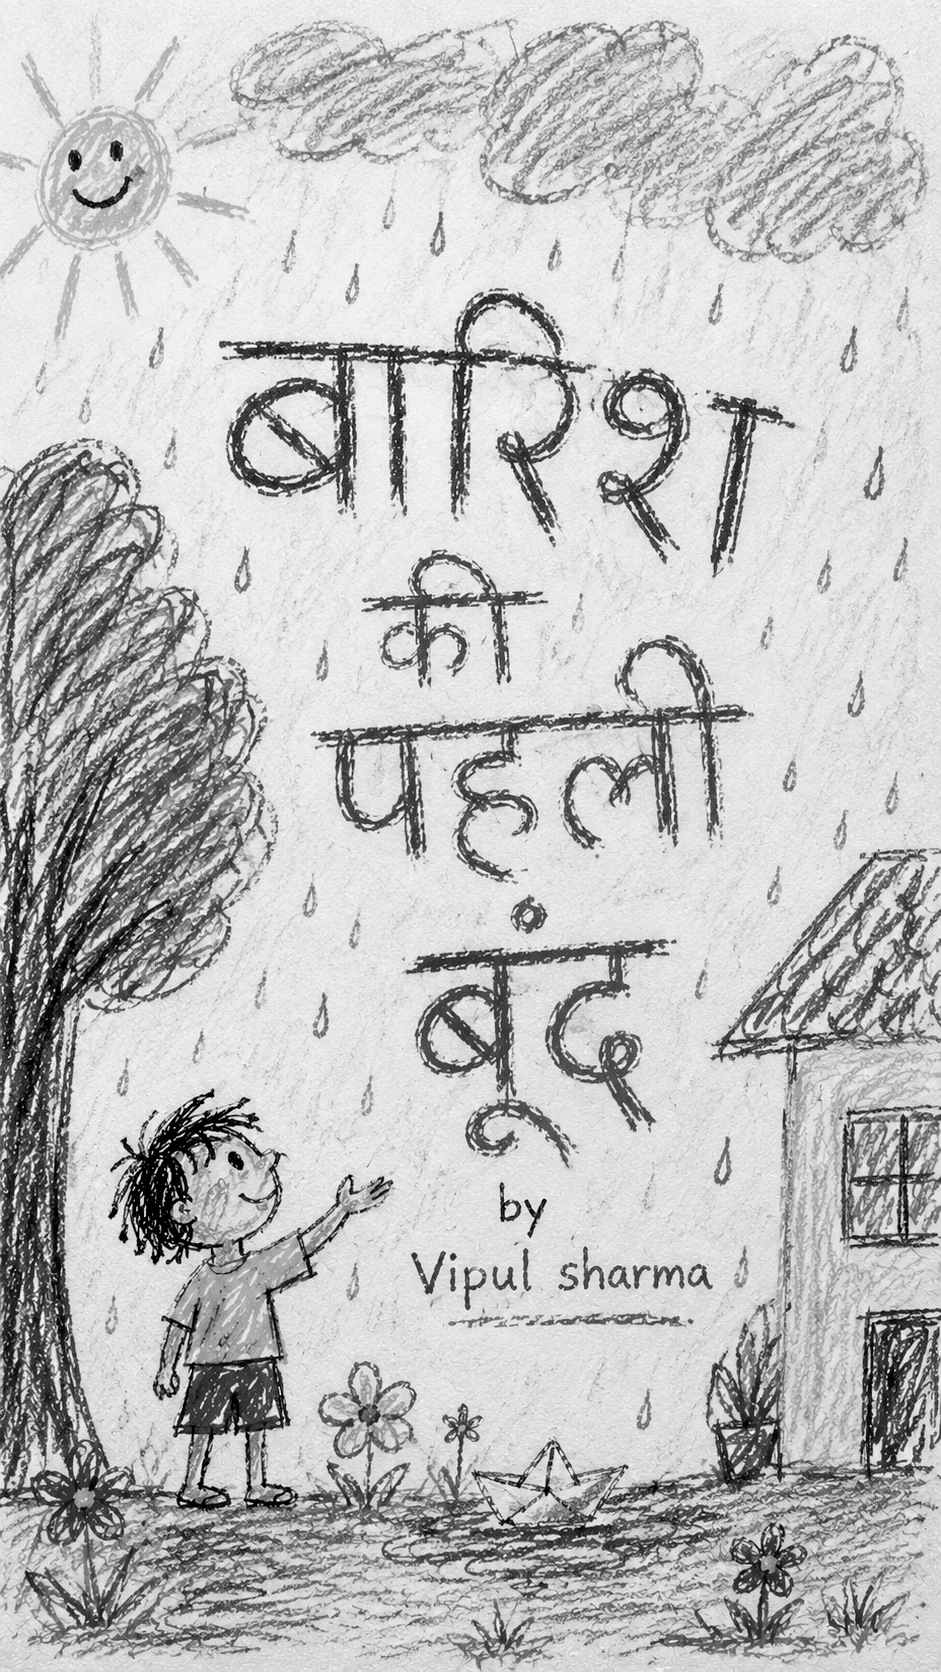 बारिश
की
पहली
बूंद
by
Vipul sharma